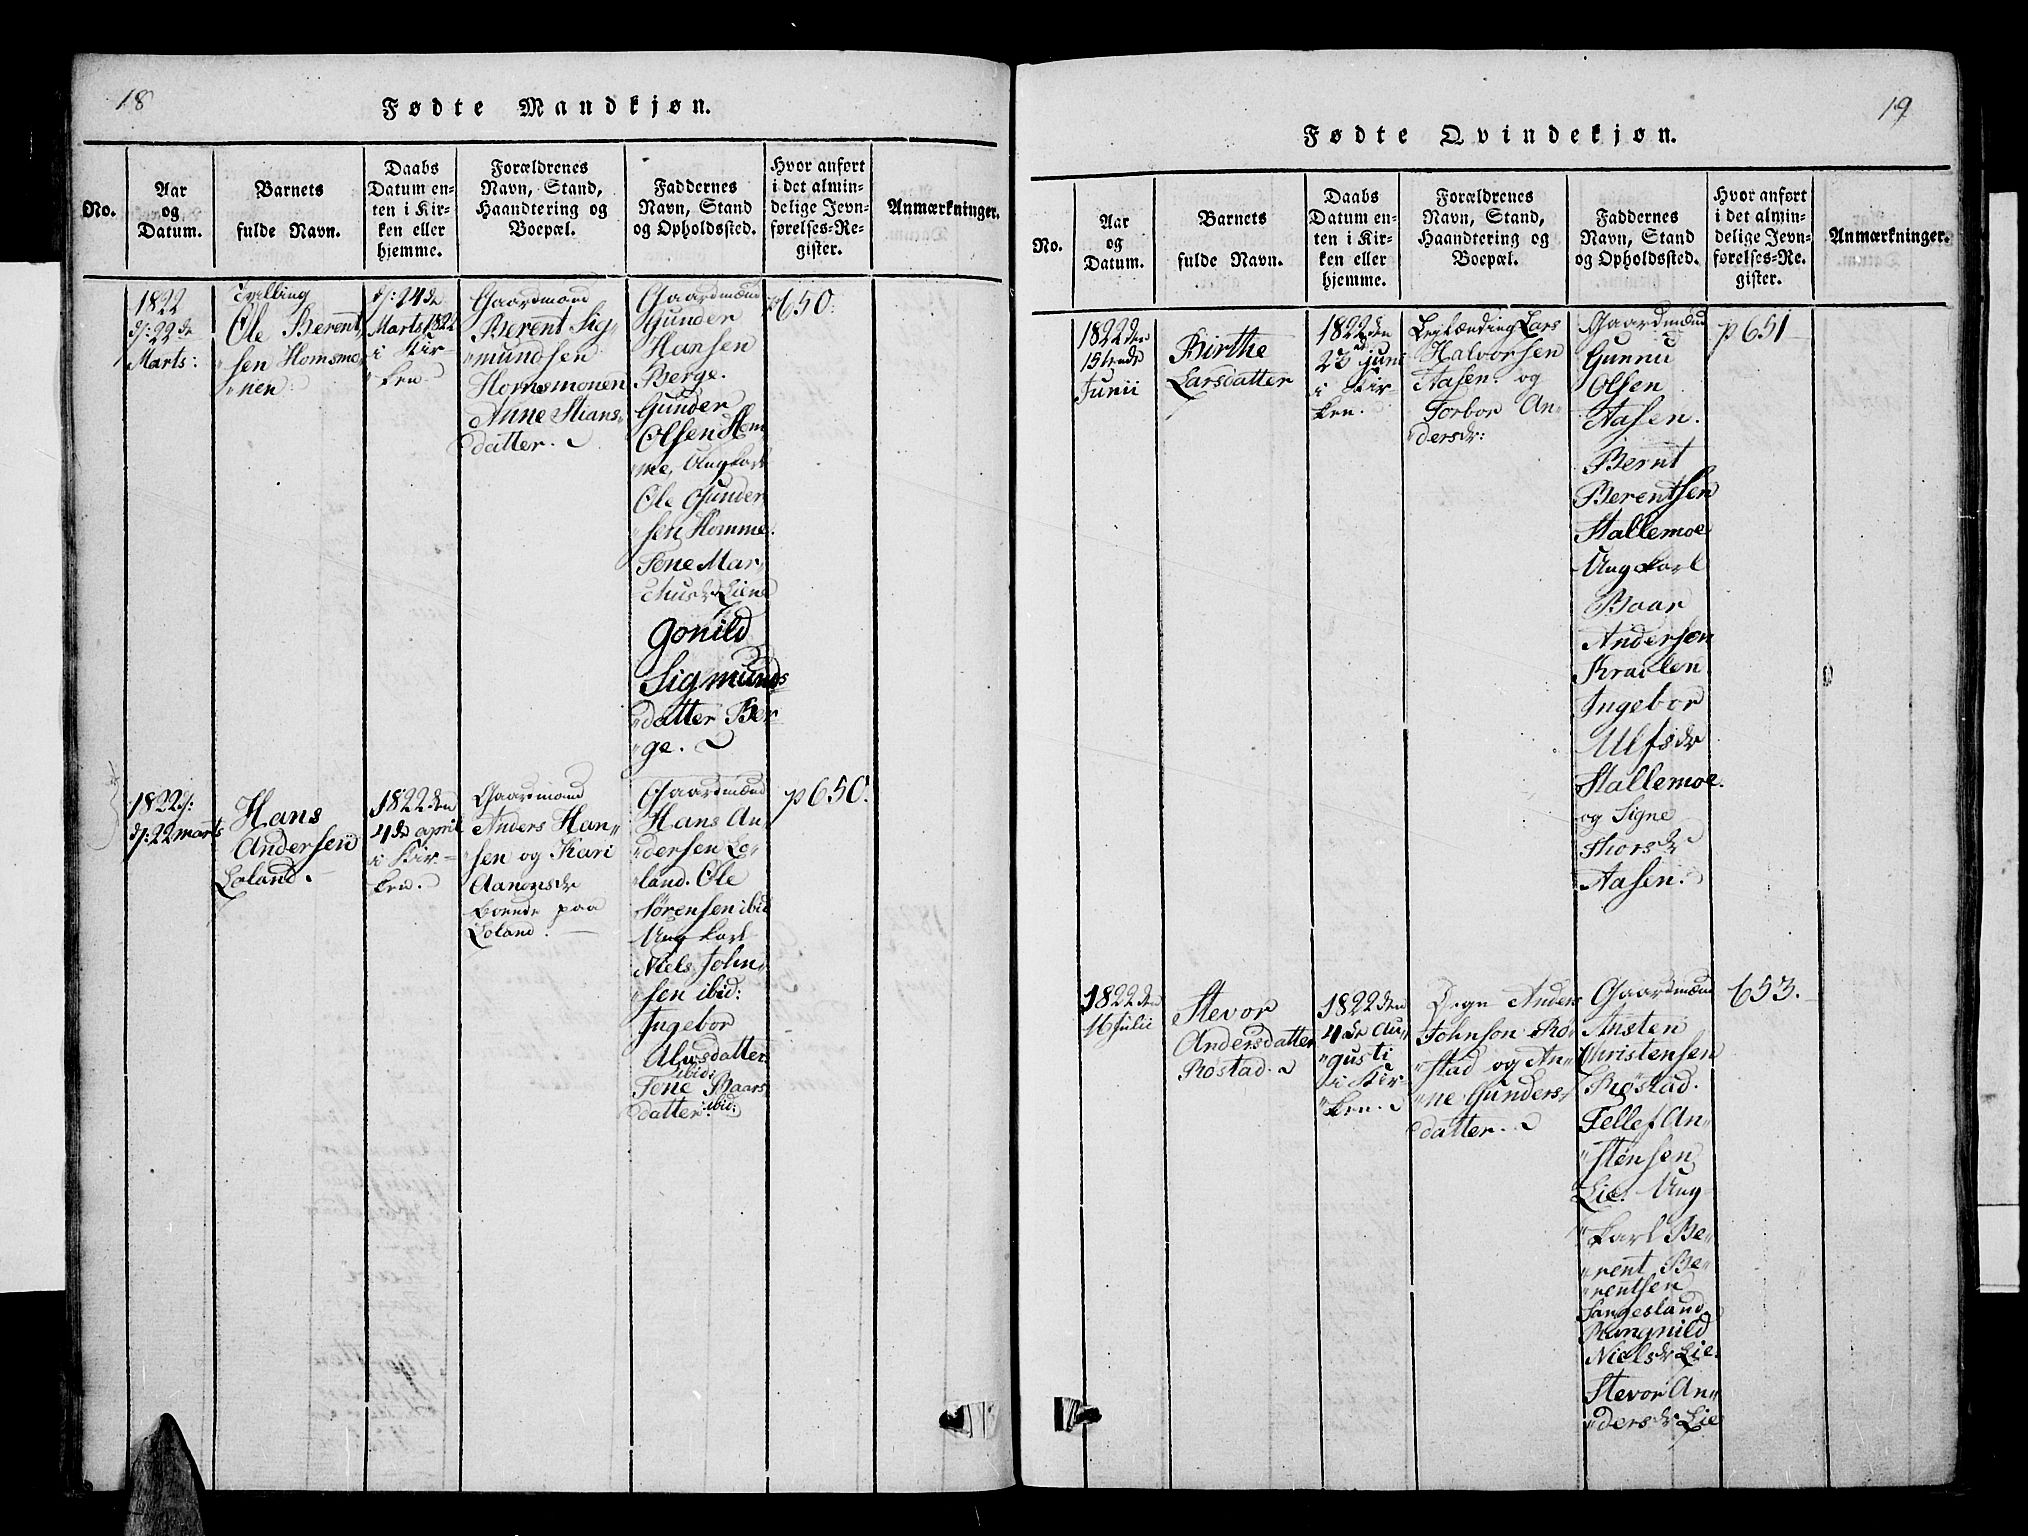 18
Fødte Mandkjøn.
No.
Aar
og
Datum.
Barnets
fulde Navn.
Daabs
Datum en-
ten i Kir-
ken eller
hjemme.
Forældrenes
Navn, Stand,
Haandtering og
Boepæl.
Faddernes
Navn, Stand
og Opholdssted.
Hvor anført
i det almin-
delige Jevn-
førelses-Re-
gister.
Anmærkninger.
1822
d: 22 de
Marts:
Tvilling
Ole Berent-
sen Homsmo-
nen
d: 24 de
Marts 1822
i Kir-
ken.
Gaardmand
Berent Sig-
mundsen
Homsmonen
Anne Stians
datter.
Gaardmænd
Gunder
Hansen
Berge.
Gunder
Olsen Hom
me, Ungkarl
Ole Gunder
sen Homme.
Tone Mar
Liene
Gonild
Sigmunds
datter Ber
ge.
p 650.
1822 d:
d: 22 marts
Hans
Andersen
Loland.
1822 den
4 de april
i Kir-
ken.
Gaardmand
Anders Han-
sen og Kari
Aanensdr
boende paa
Loland.
Gaardmænd
Hans An-
dersen Lo-
land. Ole
Sørensen ibid
Ungkarl
Niels John-
sen ibid:
Ingebor
Alusdatter
ibid:
Tone Baars
datter ibid:
p 650.
19
Fødte Qvindekjøn.
No.
Aar
og
Datum.
Barnets
fulde Navn.
Daabs
Datum en-
ten i Kir-
ken eller
hjemme.
Forældrenes
Navn, Stand,
Haandtering og
Boepæl.
Faddernes
Navn, Stand
og Opholdssted.
Hvor anført
i det almin-
delige Jevn-
førelses-Re-
gister.
Anmærkninger.
1822 den
15tende
Junii
Birthe
Larsdatter
1822 den
23 juni
i Kir-
ken.
Leilænding Lars
Halvorsen
Aasen og
Torbor An-
dersdr:
Gaardmænd
Gunnu
Olsen
Aasen.
Bernt
Berentsen
Stallemoe
Ungkarl
Baar
Andersen
Kraelen
Ingebor
Ulfsdr
Stallemoe.
og Signe
Thorsdr
Aasen.
p 651
1822 den
16 Julii
Stevor
Andersdatter
Røstad.
1822 den
4 de Au-
gusti
i Kir-
ken.
Anders
Johnson Rø-
stad og An-
ne Gunders-
datter.
Gaardmænd
Ansten
Christensen
Røstad.
Tellef An-
stensen
Lie. Ung-
karl Be-
rent Be-
rentsen
Fangesland
Rangnild
Nielsdr Lie.
Stevor An-
dersdr Lie
653.